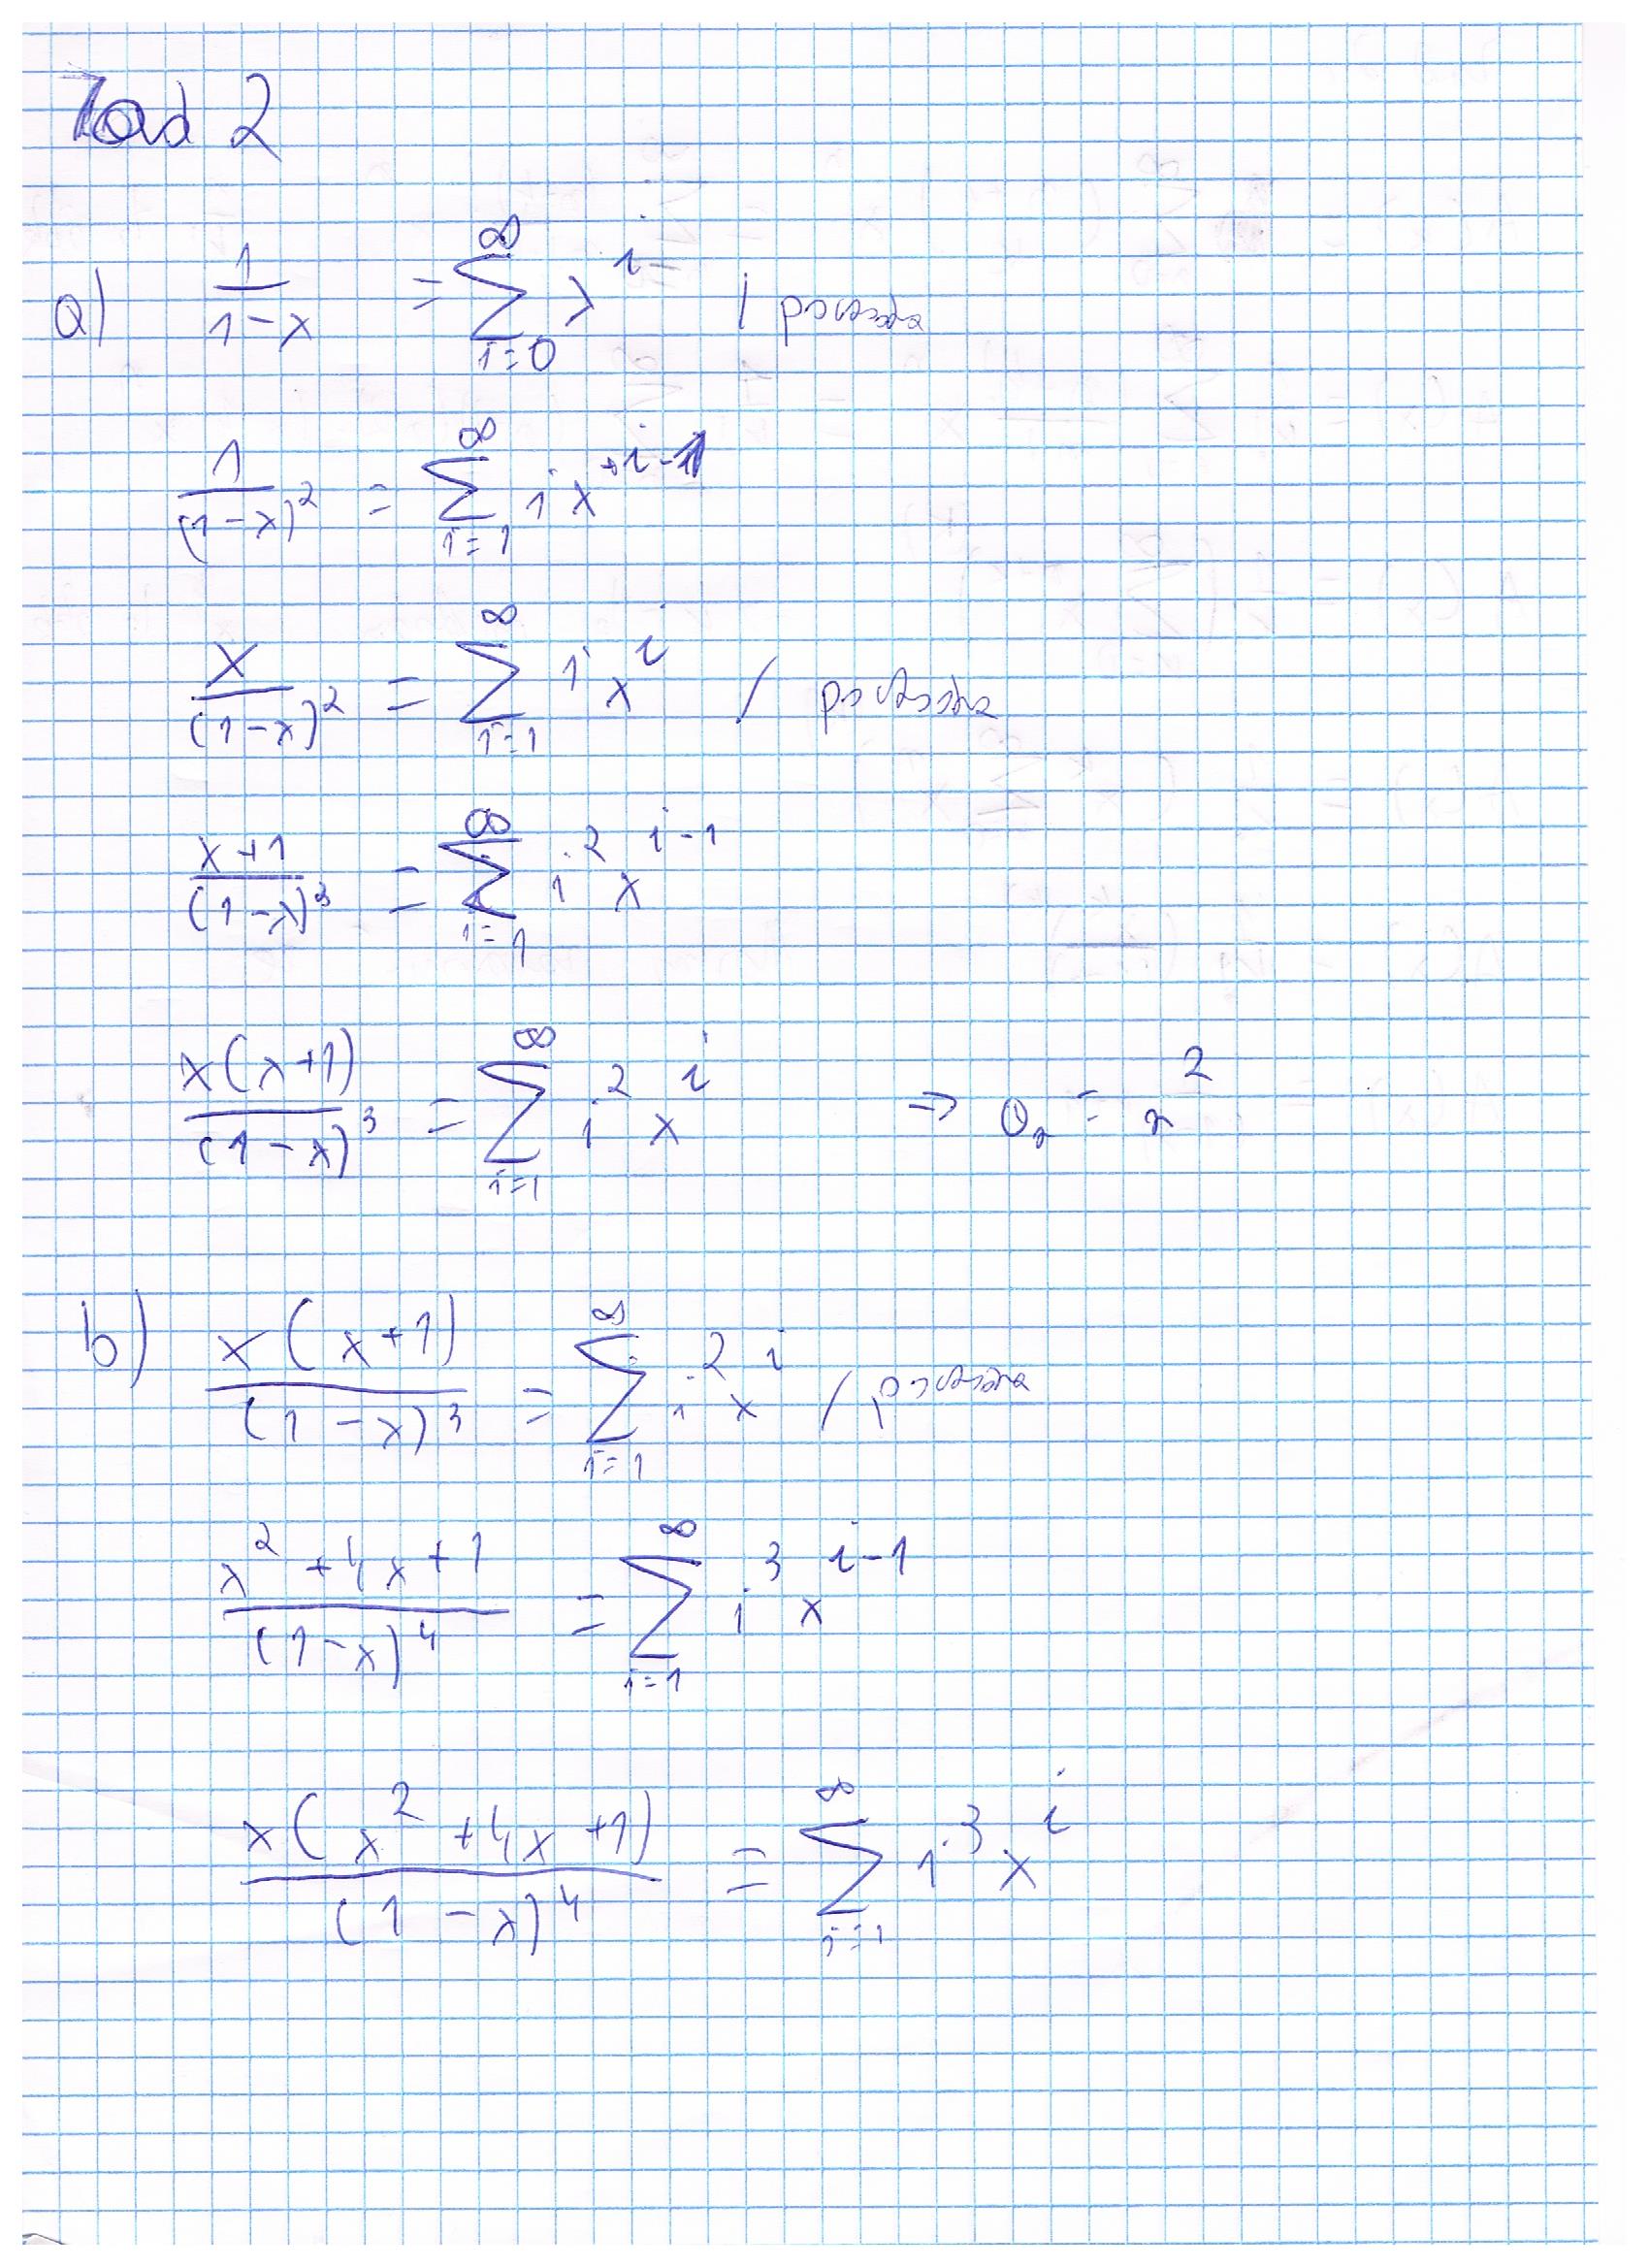 Zad 2
a) \frac{1}{1-x} = \sum_{i=0}^{\infty} x^i / pochodna
\frac{1}{(1-x)^2} = \sum_{i=1}^{\infty} i x^{i-1}
\frac{x}{(1-x)^2} = \sum_{i=1}^{\infty} i x^i / pochodna
\frac{x+1}{(1-x)^3} = \sum_{i=1}^{\infty} i^2 x^{i-1}
\frac{x(x+1)}{(1-x)^3} = \sum_{i=1}^{\infty} i^2 x^i → a_n = n^2
b) \frac{x(x+1)}{(1-x)^3} = \sum_{i=1}^{\infty} i^2 x^i / pochodna
\frac{x^2+4x+1}{(1-x)^4} = \sum_{i=1}^{\infty} i^3 x^{i-1}
\frac{x(x^2+4x+1)}{(1-x)^4} = \sum_{i=1}^{\infty} i^3 x^i